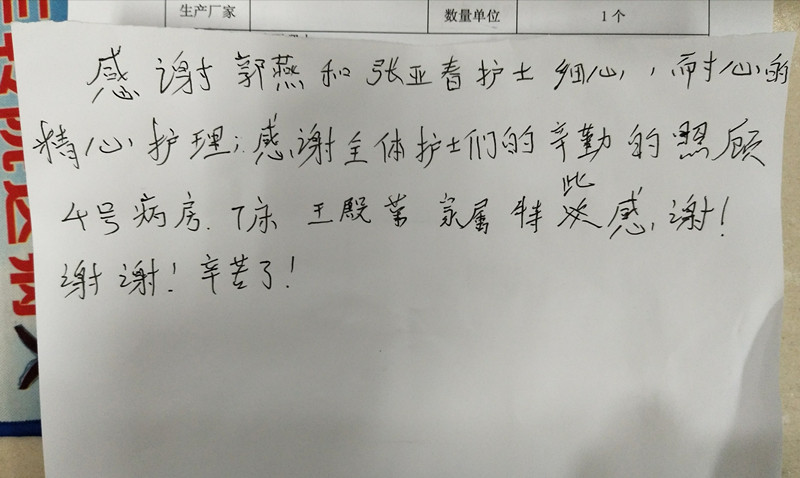 生产厂家
数量单位 1个
感谢郭燕和张亚春护士细心，耐心的
精心护理；感谢全体护士们的辛勤的照顾
此
4号病房.7床 王殿 家属特感谢！
谢谢！辛苦了！